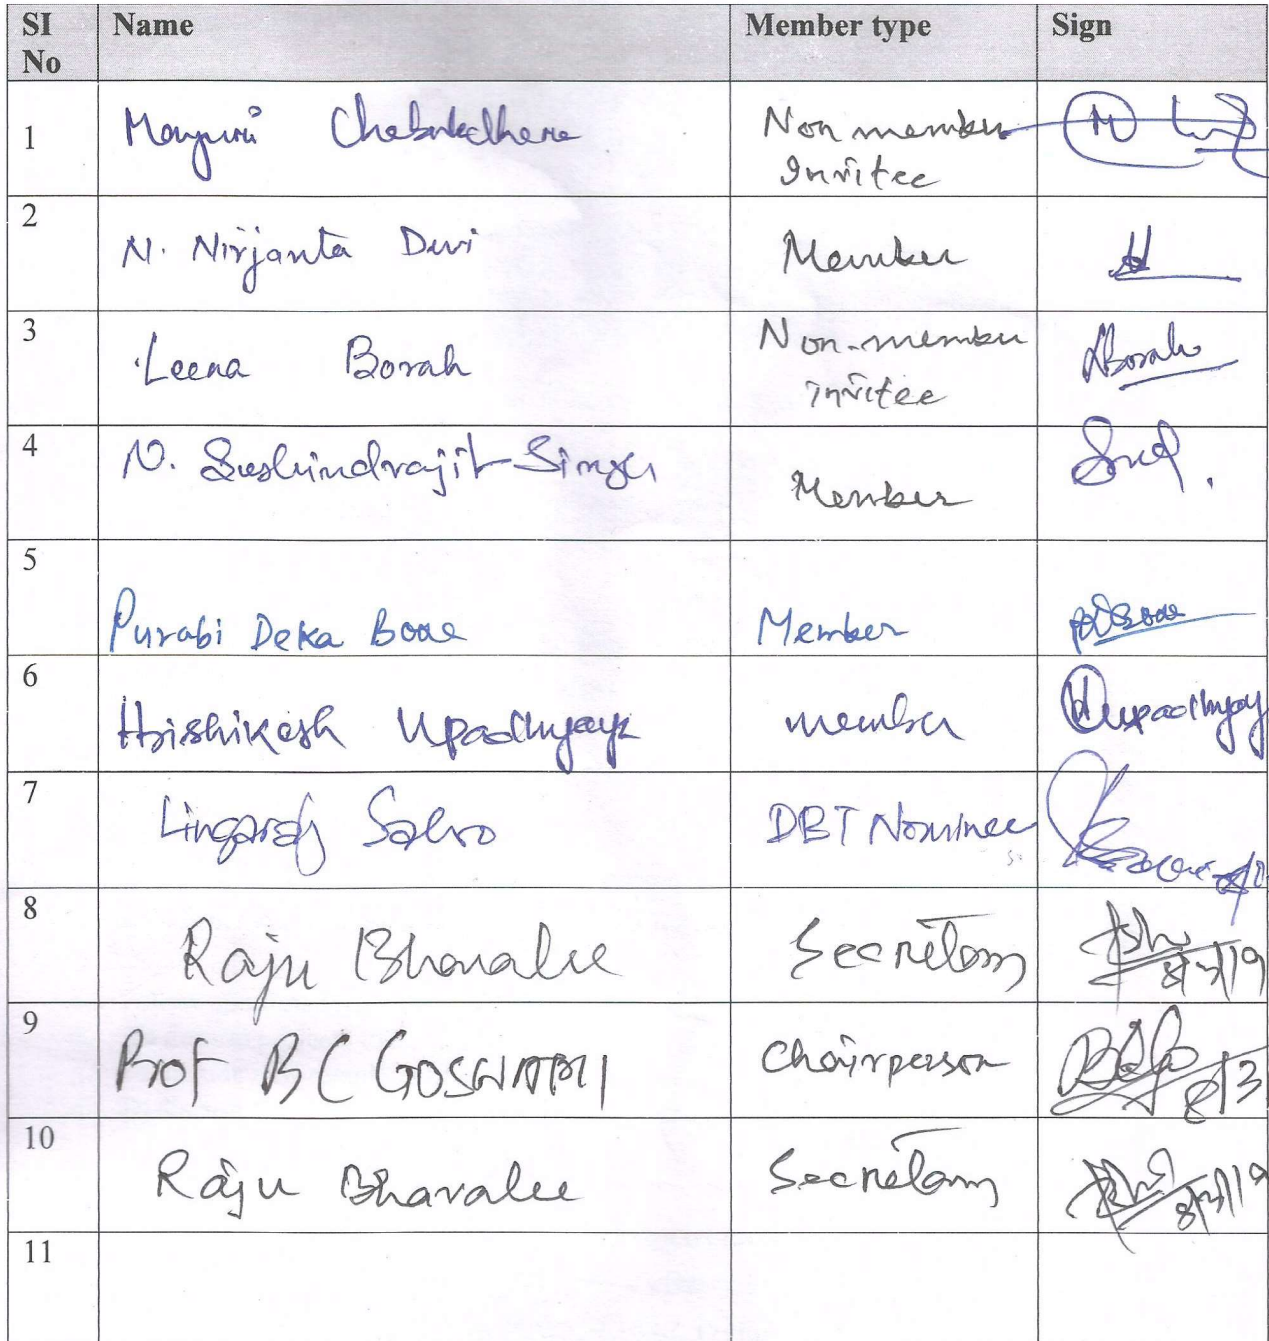 SI No Name Member type Sign
1 Mayuri Chabukdhara Non member
Invitee
2 N. Nirjanta Devi Member
3 Leena Borah Non-member
invitee LBorah
4 N. Sushindrajit Singh Member
5 Purabi Deka Bose Member
6 Hrishikesh Upadhyaya member HUpadhyay
7 Lingaraj Sahoo DBT Nominee
8 Raju Bharalee Secretary 8/3/19
9 Prof BC GOSWAMI Chairperson 8/3
10 Raju Bharalee Secretary 8/3/19
11